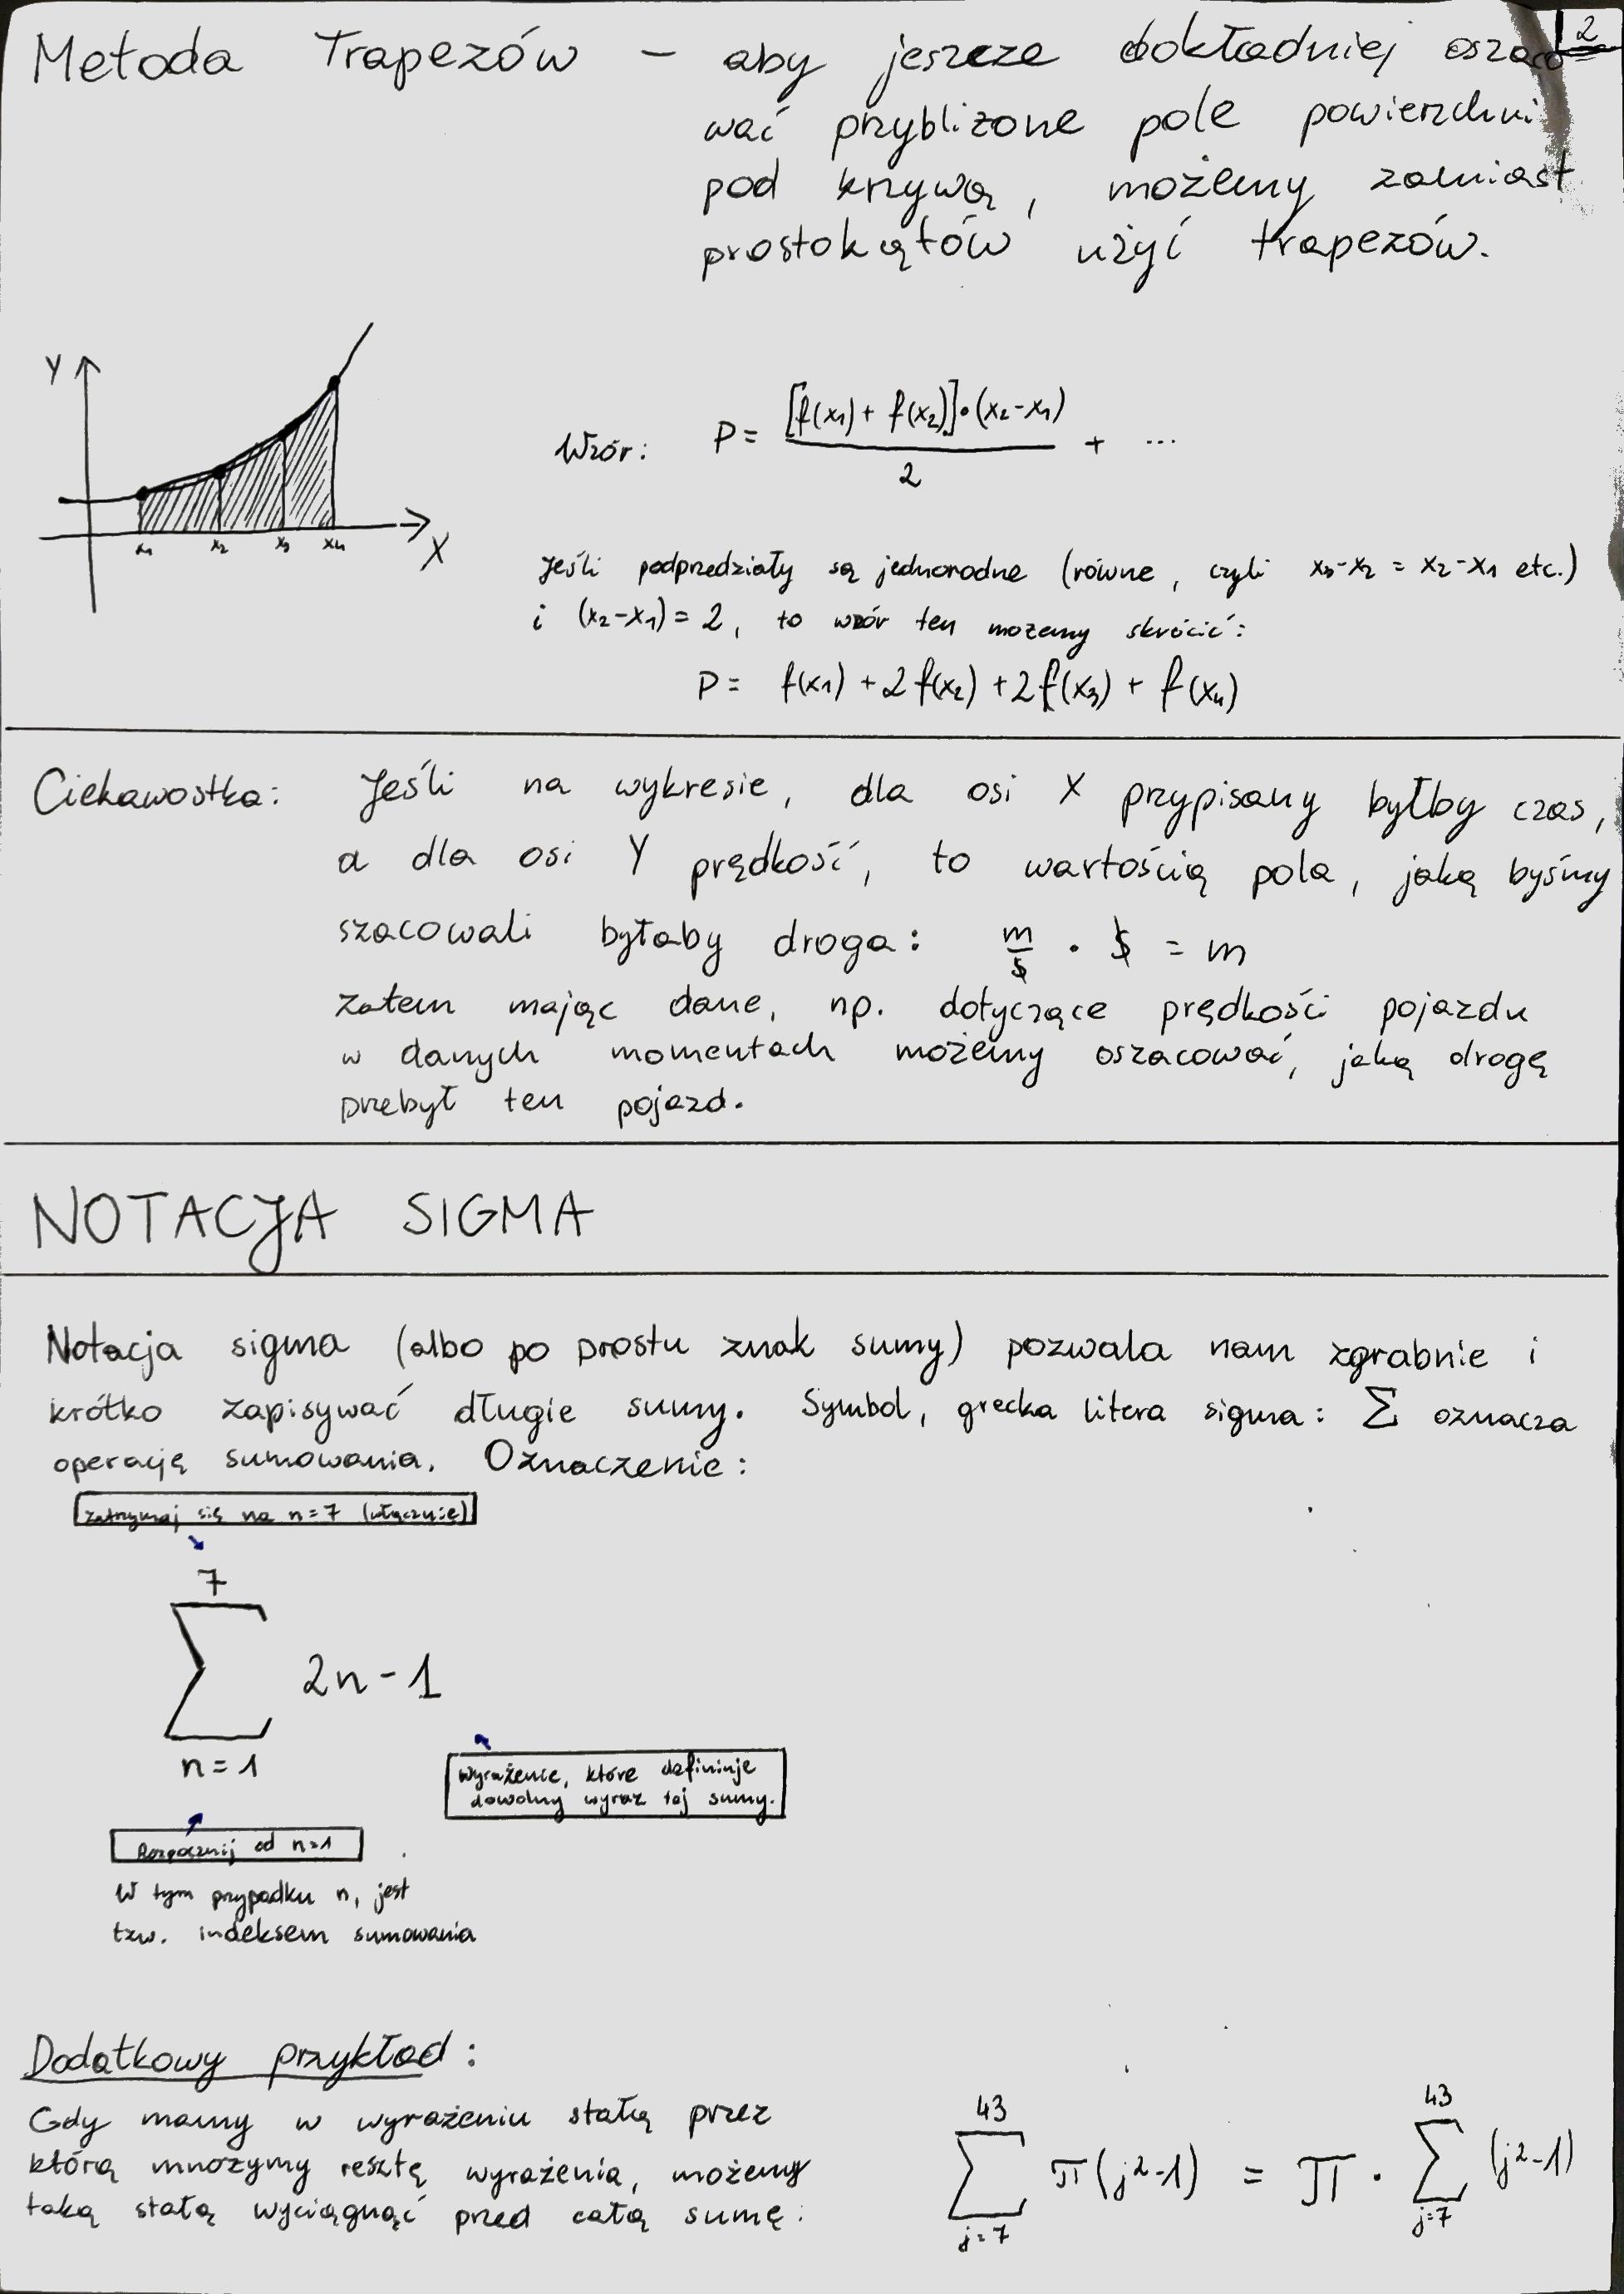 2
Metoda Trapezów – aby jeszcze dokładniej oszaco
wać przybliżone pole powierzchni
pod krzywą, możemy zamiast
prostokątów użyć trapezów.
Y
x₁ x₂ x₃ x₄ X
Wzór: P = [f(x₁) + f(x₂)]•(x₂-x₁) / 2 + ...
Jeśli podprzedziały są jednorodne (równe, czyli x₃-x₂ = x₂-x₁ etc.)
i (x₂-x₁) = 2, to wzór ten możemy skrócić:
P = f(x₁) + 2f(x₂) + 2f(x₃) + f(x₄)
Ciekawostka: Jeśli na wykresie, dla osi X przypisany byłby czas,
a dla osi Y prędkość, to wartością pola, jaką byśmy
szacowali byłaby droga: m/s • s = m
Zatem mając dane, np. dotyczące prędkości pojazdu
w danych momentach możemy oszacować, jaką drogę
przebył ten pojazd.
NOTACJA SIGMA
Notacja sigma (albo po prostu znak sumy) pozwala nam zgrabnie i
krótko zapisywać długie sumy. Symbol, grecka litera sigma: Σ oznacza
operację sumowania. Oznaczenie:
Zatrzymaj się na n=7 (włącznie)
7
Σ 2n-1
n=1
Wyrażenie, które definiuje
dowolny wyraz tej sumy.
Rozpocznij od n=1
W tym przypadku n, jest
tzw. indeksem sumowania
Dodatkowy przykład:
Gdy mamy w wyrażeniu stałą przez
którą mnożymy resztę wyrażenia, możemy
taką stałą wyciągnąć przed całą sumę:
43 43
Σ π(j²-1) = π • Σ (j²-1)
j=7 j=7